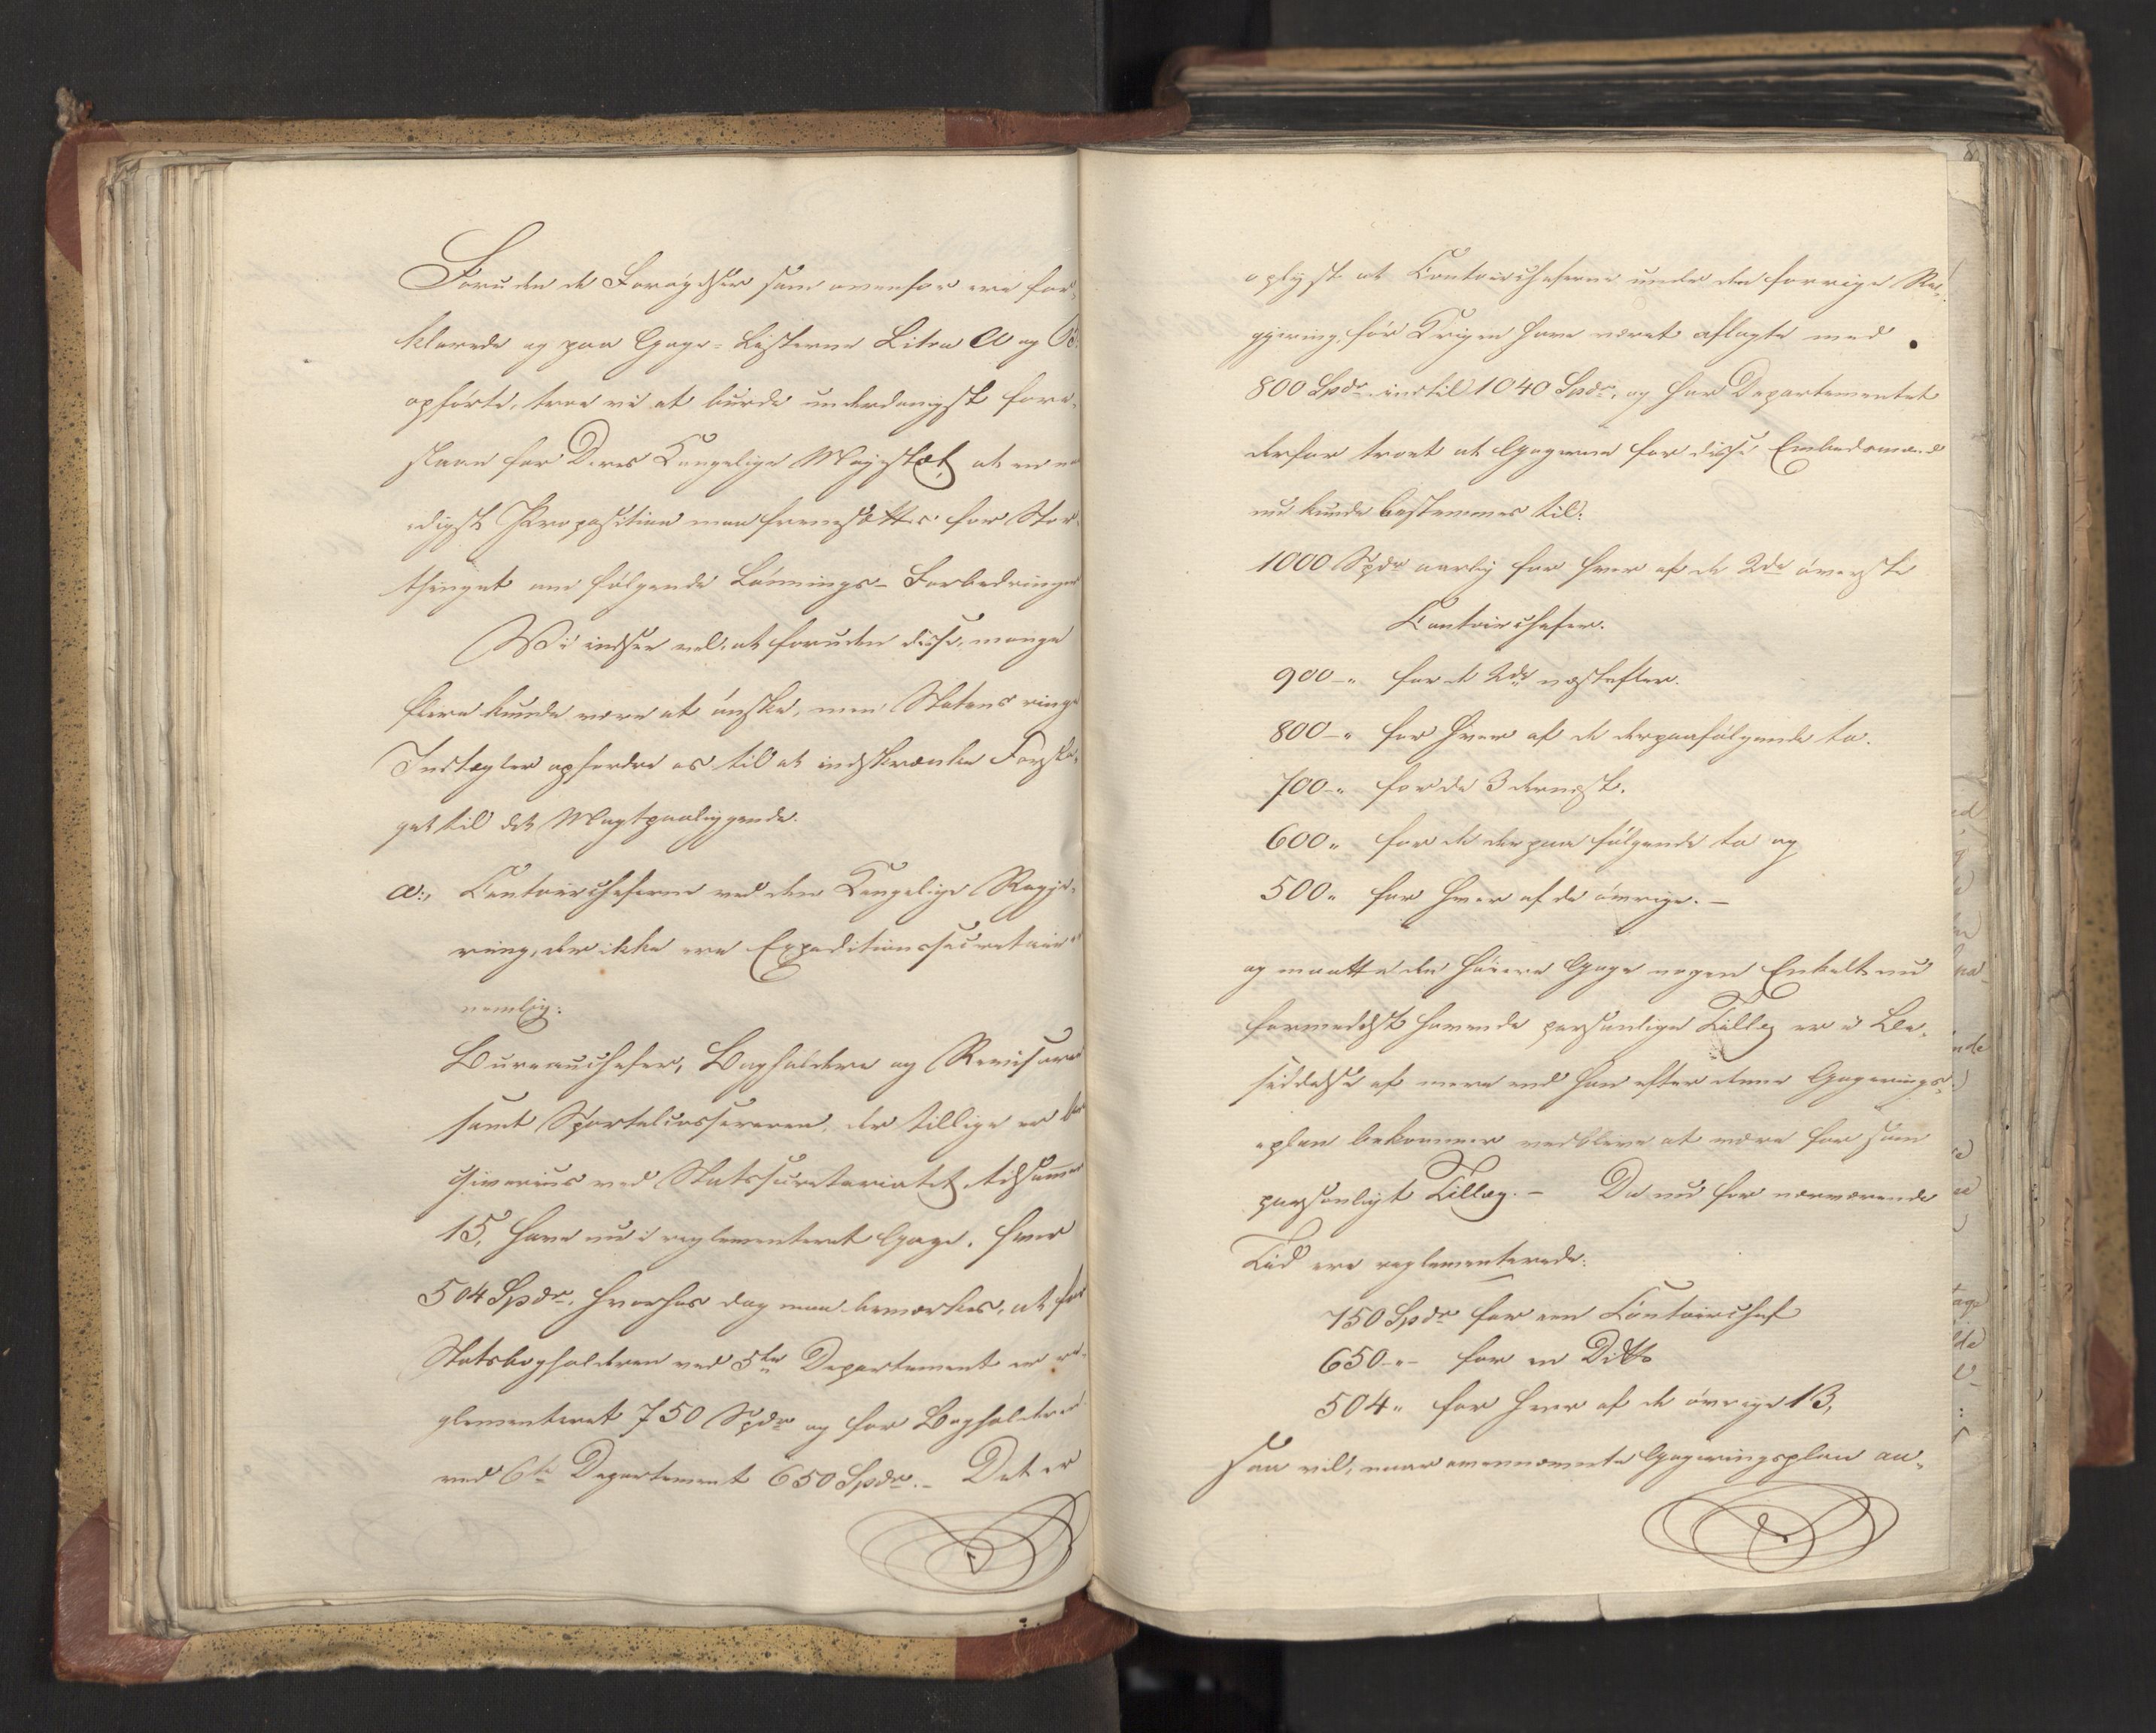 Foruden de Forøgelser som ovenfor ere for-
klarede og paa Gage-Listerne Litra A og B.
opførte, troe vi at burde underdanigst fore-
slaae for Deres Kongelige Majestæt, at en
Proposition maa fremsættes for Stor-
thinget om følgende Lønnings-Forbedringer
Vi indsee vel, at foruden disse, mange
flere kunde være at ønske, men Statens ringe
Indtægter opfordre os til at indskrænke Forsla-
get til det Magtpaaliggende.
a:, Contoircheferne ved den Kongelige Regje-
ring, der ikke ere Expeditionssecretairer
nemlig:
Bureauchefer, Bogholdere og Revisorer
samt Sportelcassereren, der tillige er
ved Statssecretariatet, tilsammen
15, have nu i reglementeret Gage, hver
504 Spdr, hvorhos dog maa bemærkes, at for
Statsbogholderen ved 5te Departement er re-
glementeret 750 Spdr og for Bogholderen
ved 6te Departement 650 Spdr.- Det er
oplyst at Contoircheferne under den forrige Re-
gjering, før Krigen have været aflagte med
800 Spdr indtil 1040 Spdr, og har Departementet
derfor troet at Gagerne for disse Embedsmænd
nu kunde bestemmes til:
1000 Spdr aarlig for hver af de 2de øverste
Contoirchefer.
900-" for de 2de næstefter.
800-" for hver af de derpaafølgende to.
700-" for de 3 dernæst.
600" for de derpaa følgende to og
500" for hver af de øvrige.-
og maatte den høiere Gage nogen Enkelt nu
formedelst havende personlige Tillæg er i Be-
siddelse af mere end han efter denne Gagerings-
plan bekommer vedblive at være for ham
personligt Tillæg.- Da nu for nærværende
Tid ere reglementerede:
750 Spdr for een Contoirchef
650-"- for en Ditto
504" for hver af de øvrige 13,
saa vil, naar ovennævnte Gageringsplan an-